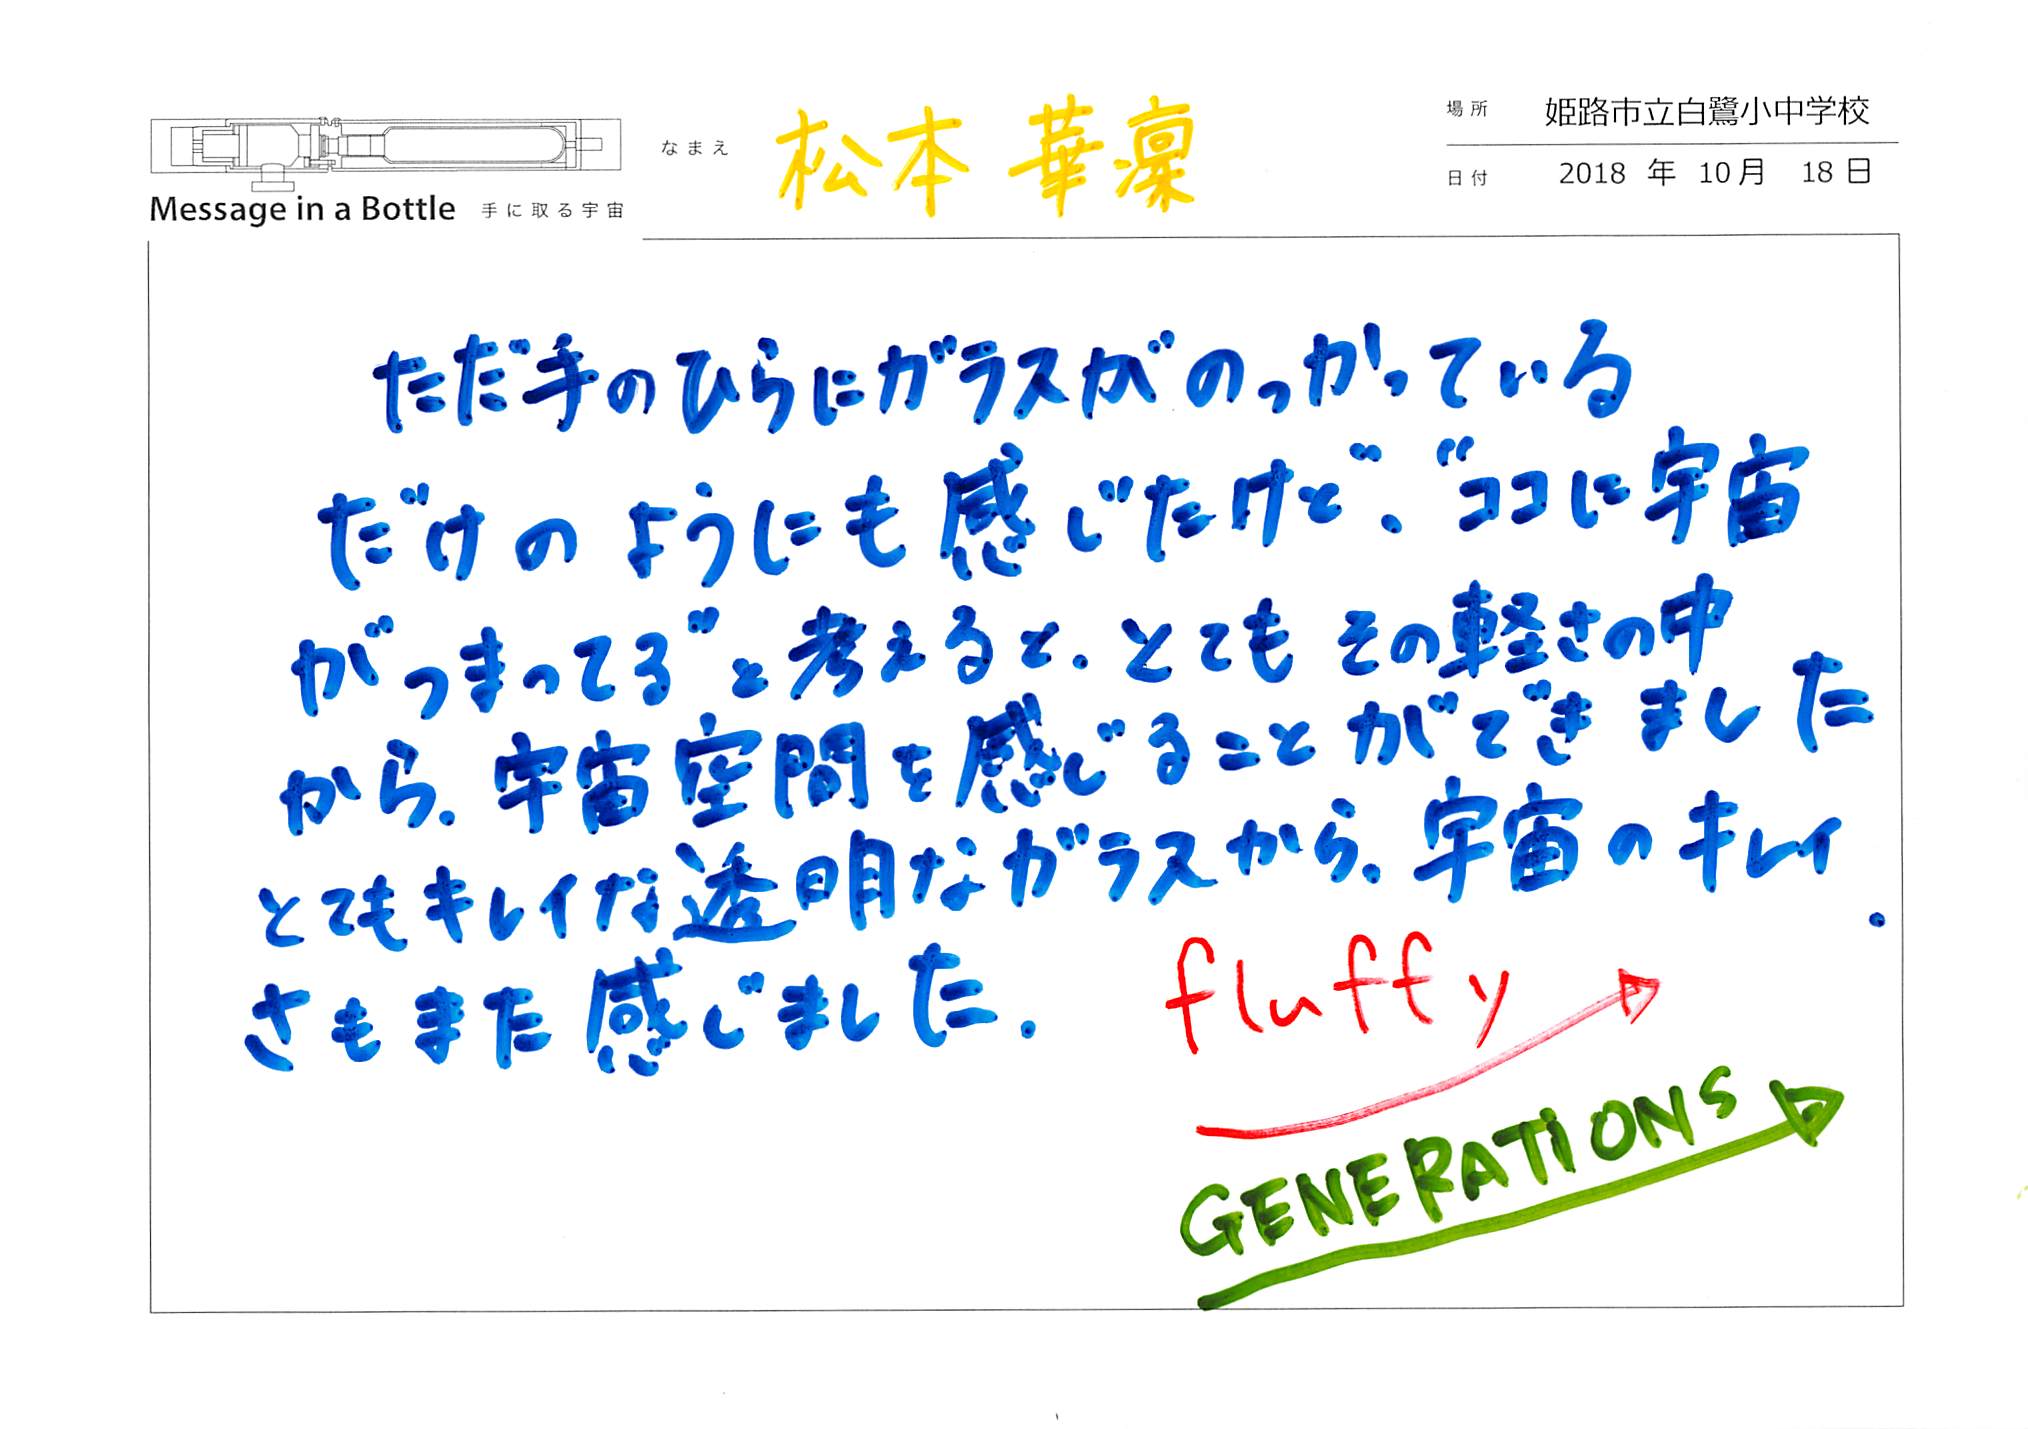 Message in a Bottle 手に取る宇宙
なまえ 松本 華凜
場所 姫路市立白鷺小中学校
日付 2018 年 10月 18日
ただ手のひらにガラスがのっかっている
だけのようにも感じたけど、"ココに宇宙
がつまってる"と考えると、とてもその軽さの中
から、宇宙空間を感じることができました.
とてもキレイな透明なガラスから、宇宙のキレイ
さもまた感じました.
fluffy
GENERATIONS